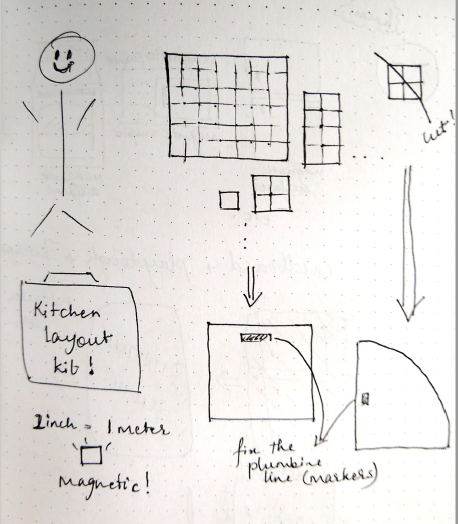 cut!
Kitchen
layout
kit!
1inch = 1 meter
magnetic!
fix the
plumbine
line (markers)